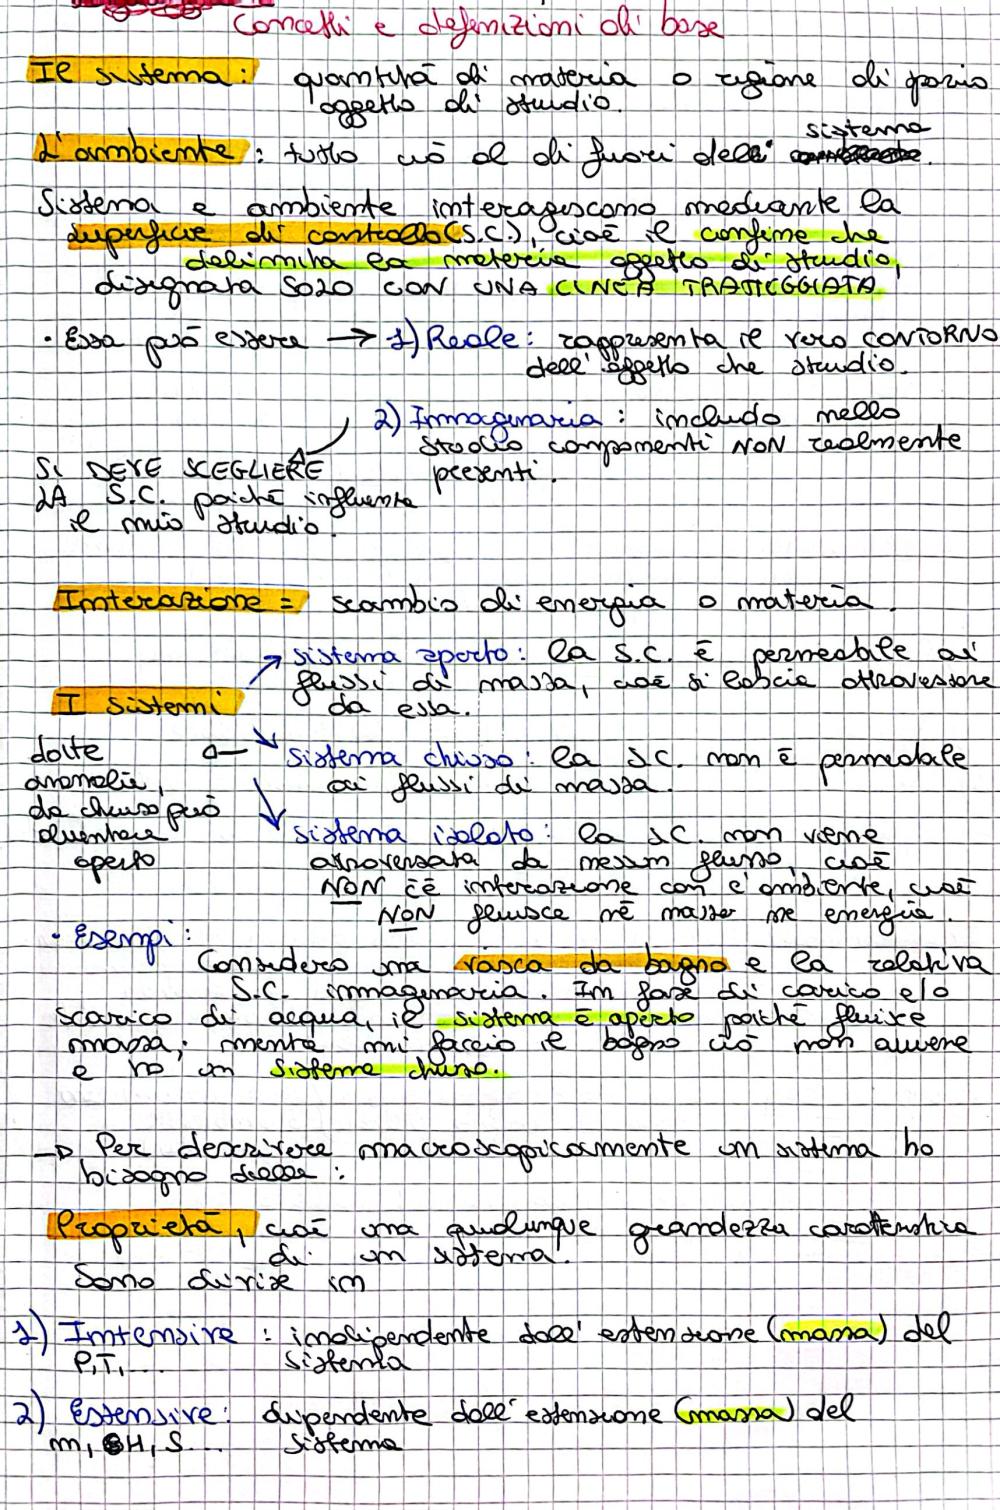 Concetti e definizioni di base
Il sistema: quantità di materia o regione di spazio
oggetto di studio.
L'ambiente: tutto ciò al di fuori dell' sistema.
Sistema e ambiente interagiscono mediante la
superficie di controllo (S.C.), cioè il confine che
delimita la materia oggetto di studio,
disegnata SOLO CON UNA LINEA TRATTEGGIATA
• Essa può essere → 1) Reale: rappresenta il vero CONTORNO
dell'oggetto che studio.
2) Immaginaria: includo nello
studio componenti NON realmente
presenti.
SI DEVE SCEGLIERE
LA S.C. poiché influenza
il mio studio.
Interazione = scambio di energia o materia.
sistema aperto: la S.C. è permeabile ai
flussi di massa, cioè si lascia attraversare
da essa.
I sistemi
sistema chiuso: la S.C. non è permeabile
ai flussi di massa.
date
anomalie,
da chiuso può
diventare
aperto
sistema isolato: la S.C. non viene
attraversata da nessun flusso, cioè
NON c'è interazione con l'ambiente, cioè
NON fluisce né massa ne energia.
• Esempi:
Considero una vasca da bagno e la relativa
S.C. immaginaria. In fase di carico e/o
scarico di acqua, il sistema è aperto poiché fluisce
massa; mentre mi faccio il bagno ciò non avviene
e ho un sistema chiuso.
→ Per descrivere macroscopicamente un sistema ho
bisogno delle:
Proprietà, cioè una qualunque grandezza caratteristica
di un sistema.
Sono divise in
1) Intensive: indipendente dall'estensione (massa) del
P,T,... sistema
2) Estensive: dipendente dall'estensione (massa) del
m, H, S... sistema